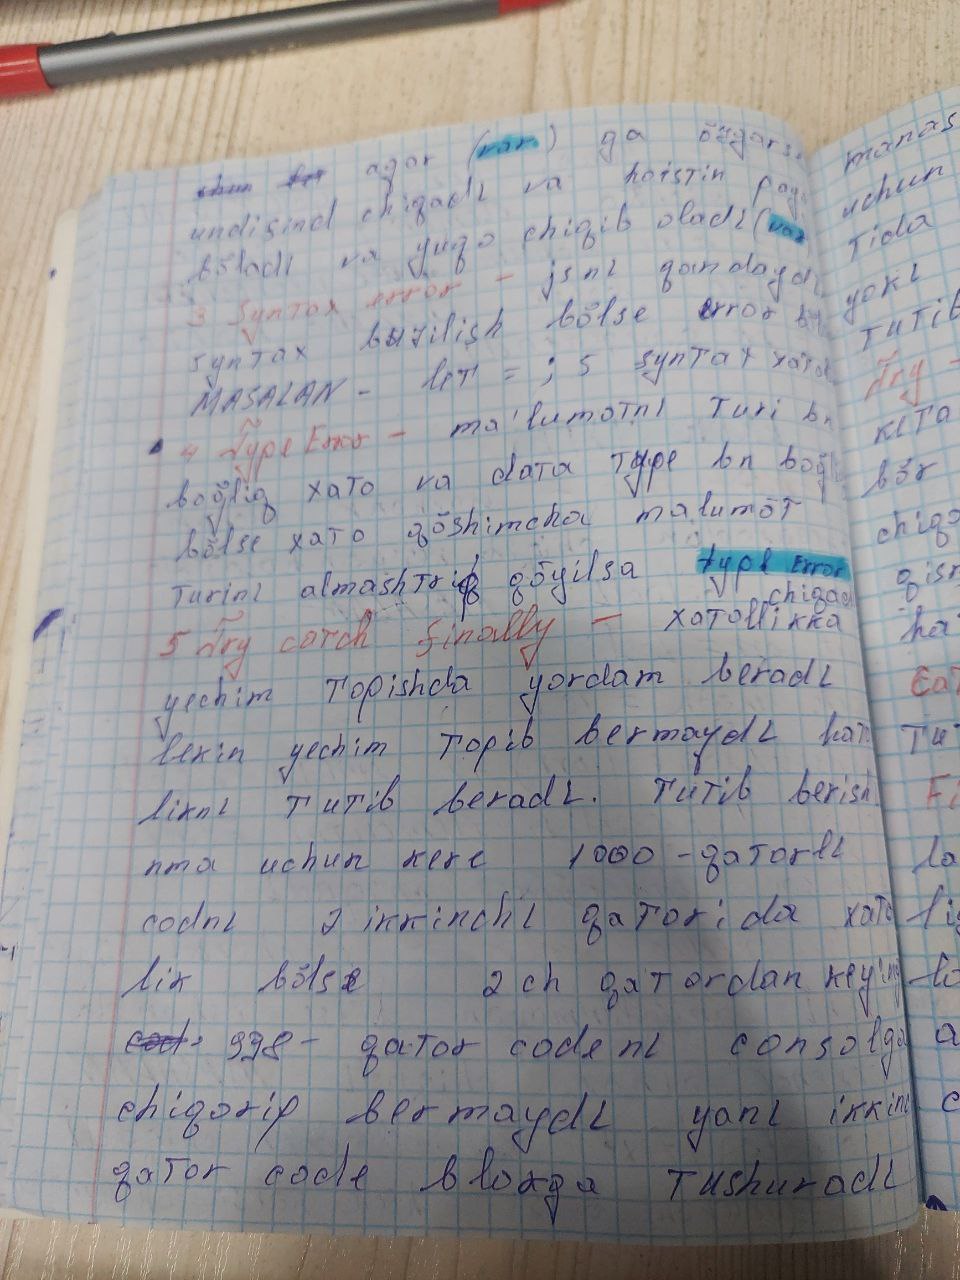 agar (var) ga özgarsa
undisind chiqadi va hoistin payd
böladi va yuqo chiqib oladi (var
3 Syntax error - jsni qandaydi
syntax buzilish bölse error b
MASALAN - let = ; 5 syntax xato
4 Type Error - ma'lumotni turi bn
boğliq xato va data type bn boğl
bölse xato qöshimcha malumot
turini almashtrib qöyilsa type Error
chiqad
5 Try catch finally - xatolikka
yechim topishda yordam beradi
lekin yechim topib bermaydi hato
likni tutib beradi. Tutib berish
nma uchun kere 1000 - qatorli
codni 2 ikkinchi qatorida xato
lik bölse 2 ch qatordan keying
998 - qator codeni consolga
chiqorip bermaydi yani ikkinc
qator code blokga tushuradi
manas
uchun
tida
yoki
tutib
Try -
keta
bör
chiqa
qism
ha
Cat
tut
Fi
la
lig
la
a
c